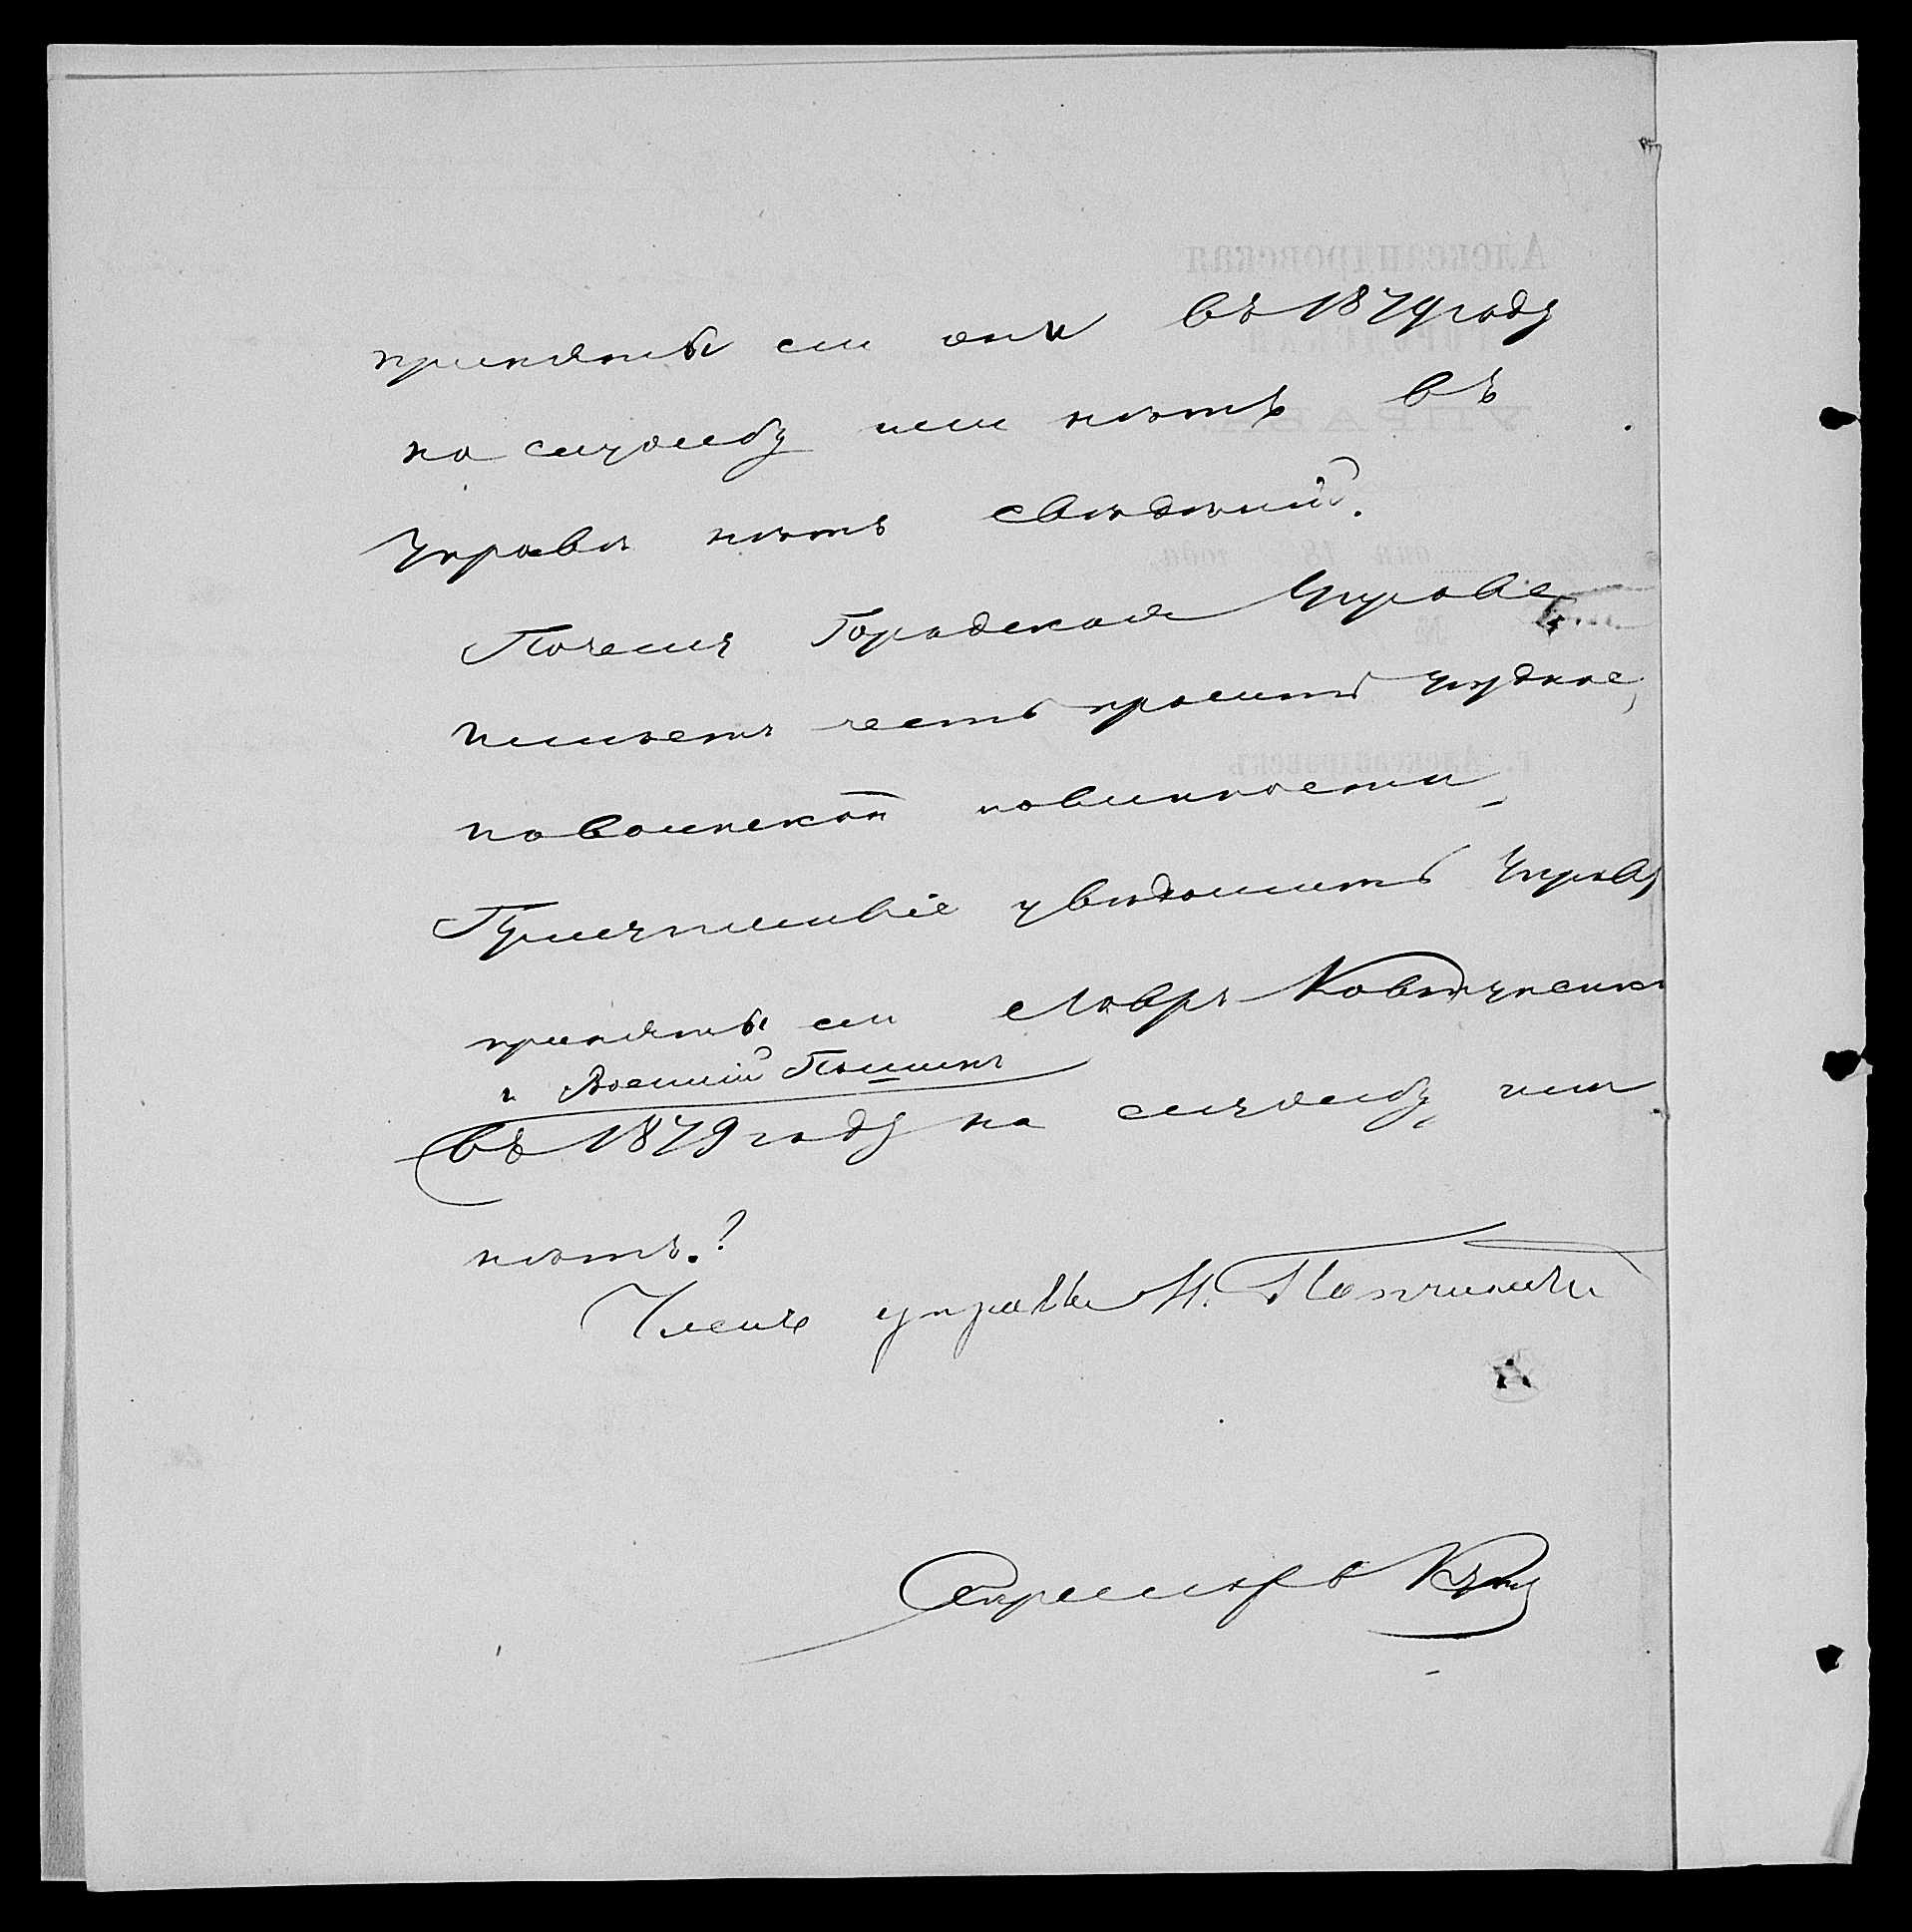 приняты ли они въ 1879 году
на службу или нѣтъ въ
Управѣ нѣтъ свѣдѣній.
Почему Городская Управа
имѣетъ честь просить уѣздное,
по воинской повинности,
Присутствіе увѣдомить Управу
приняты ли Лавръ Ковтуненко
и Василій
въ 1879 году на службу, или
нѣтъ.?
Членъ управы И.
Секретарь